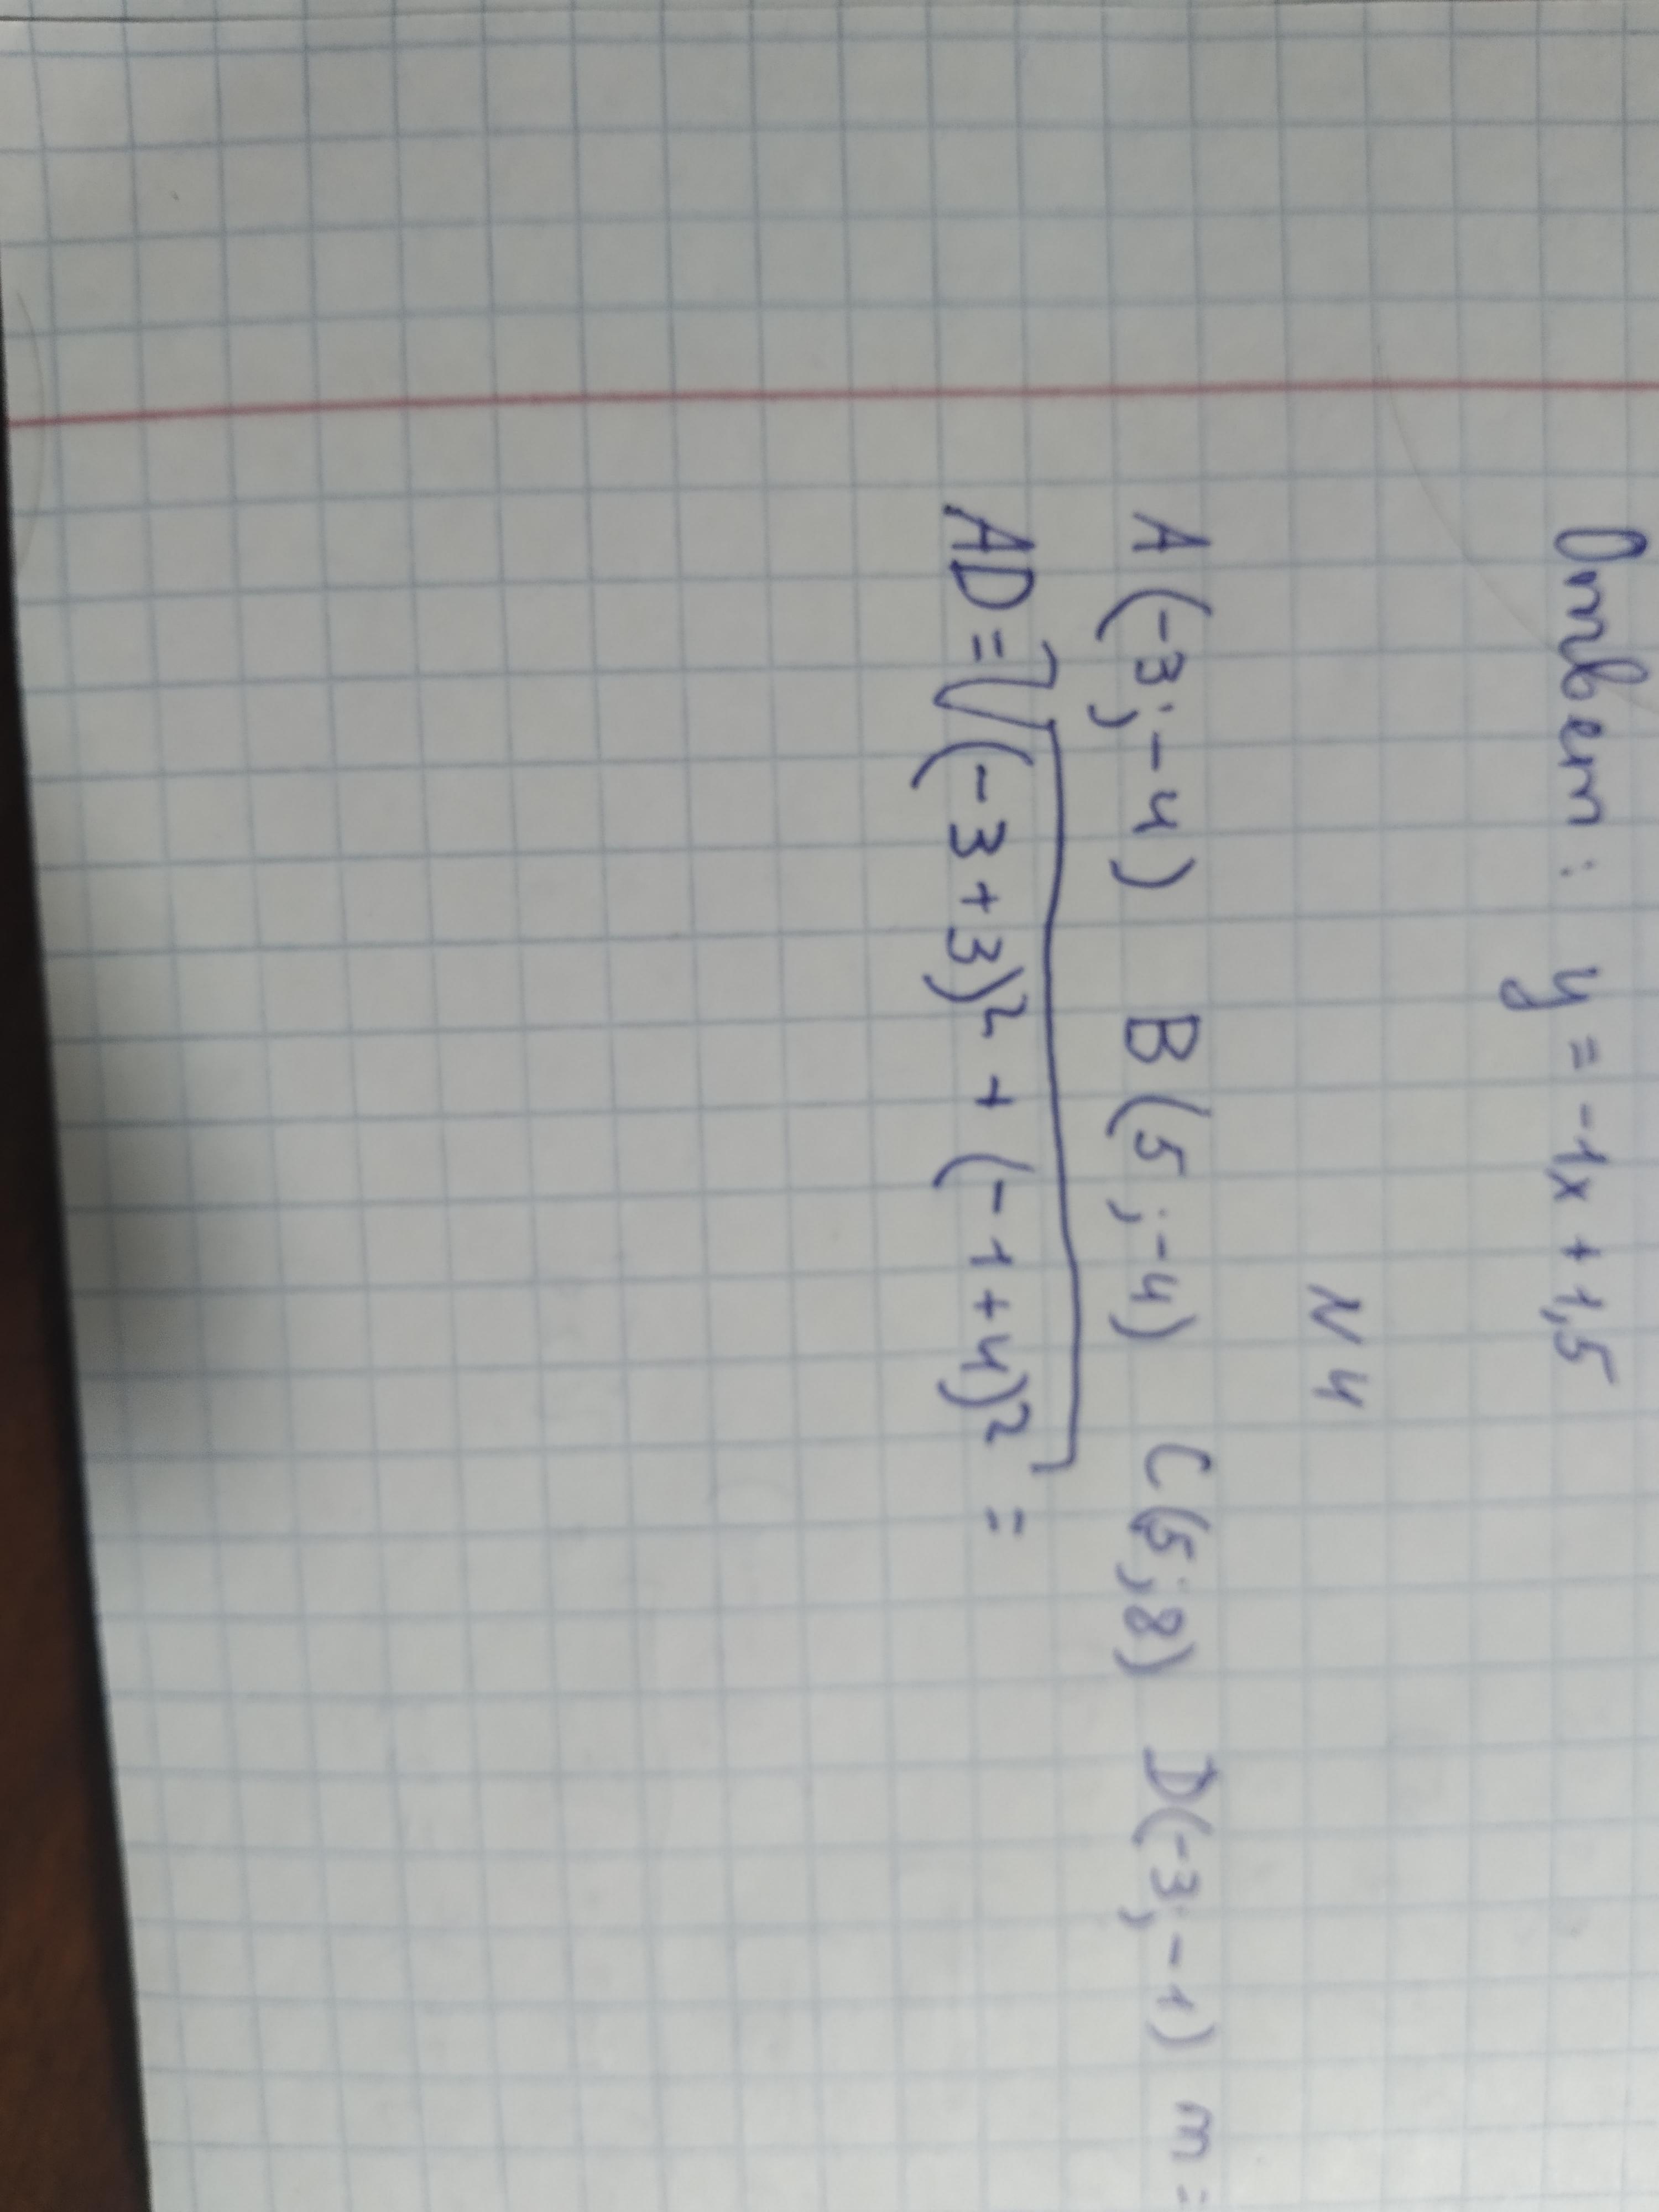 Ответ: y = -1x + 1,5
N 4
A (-3; -4) B (5; -4) C (5; 8) D (-3; -1) m =
AD = √(-3+3)² + (-1+4)² =